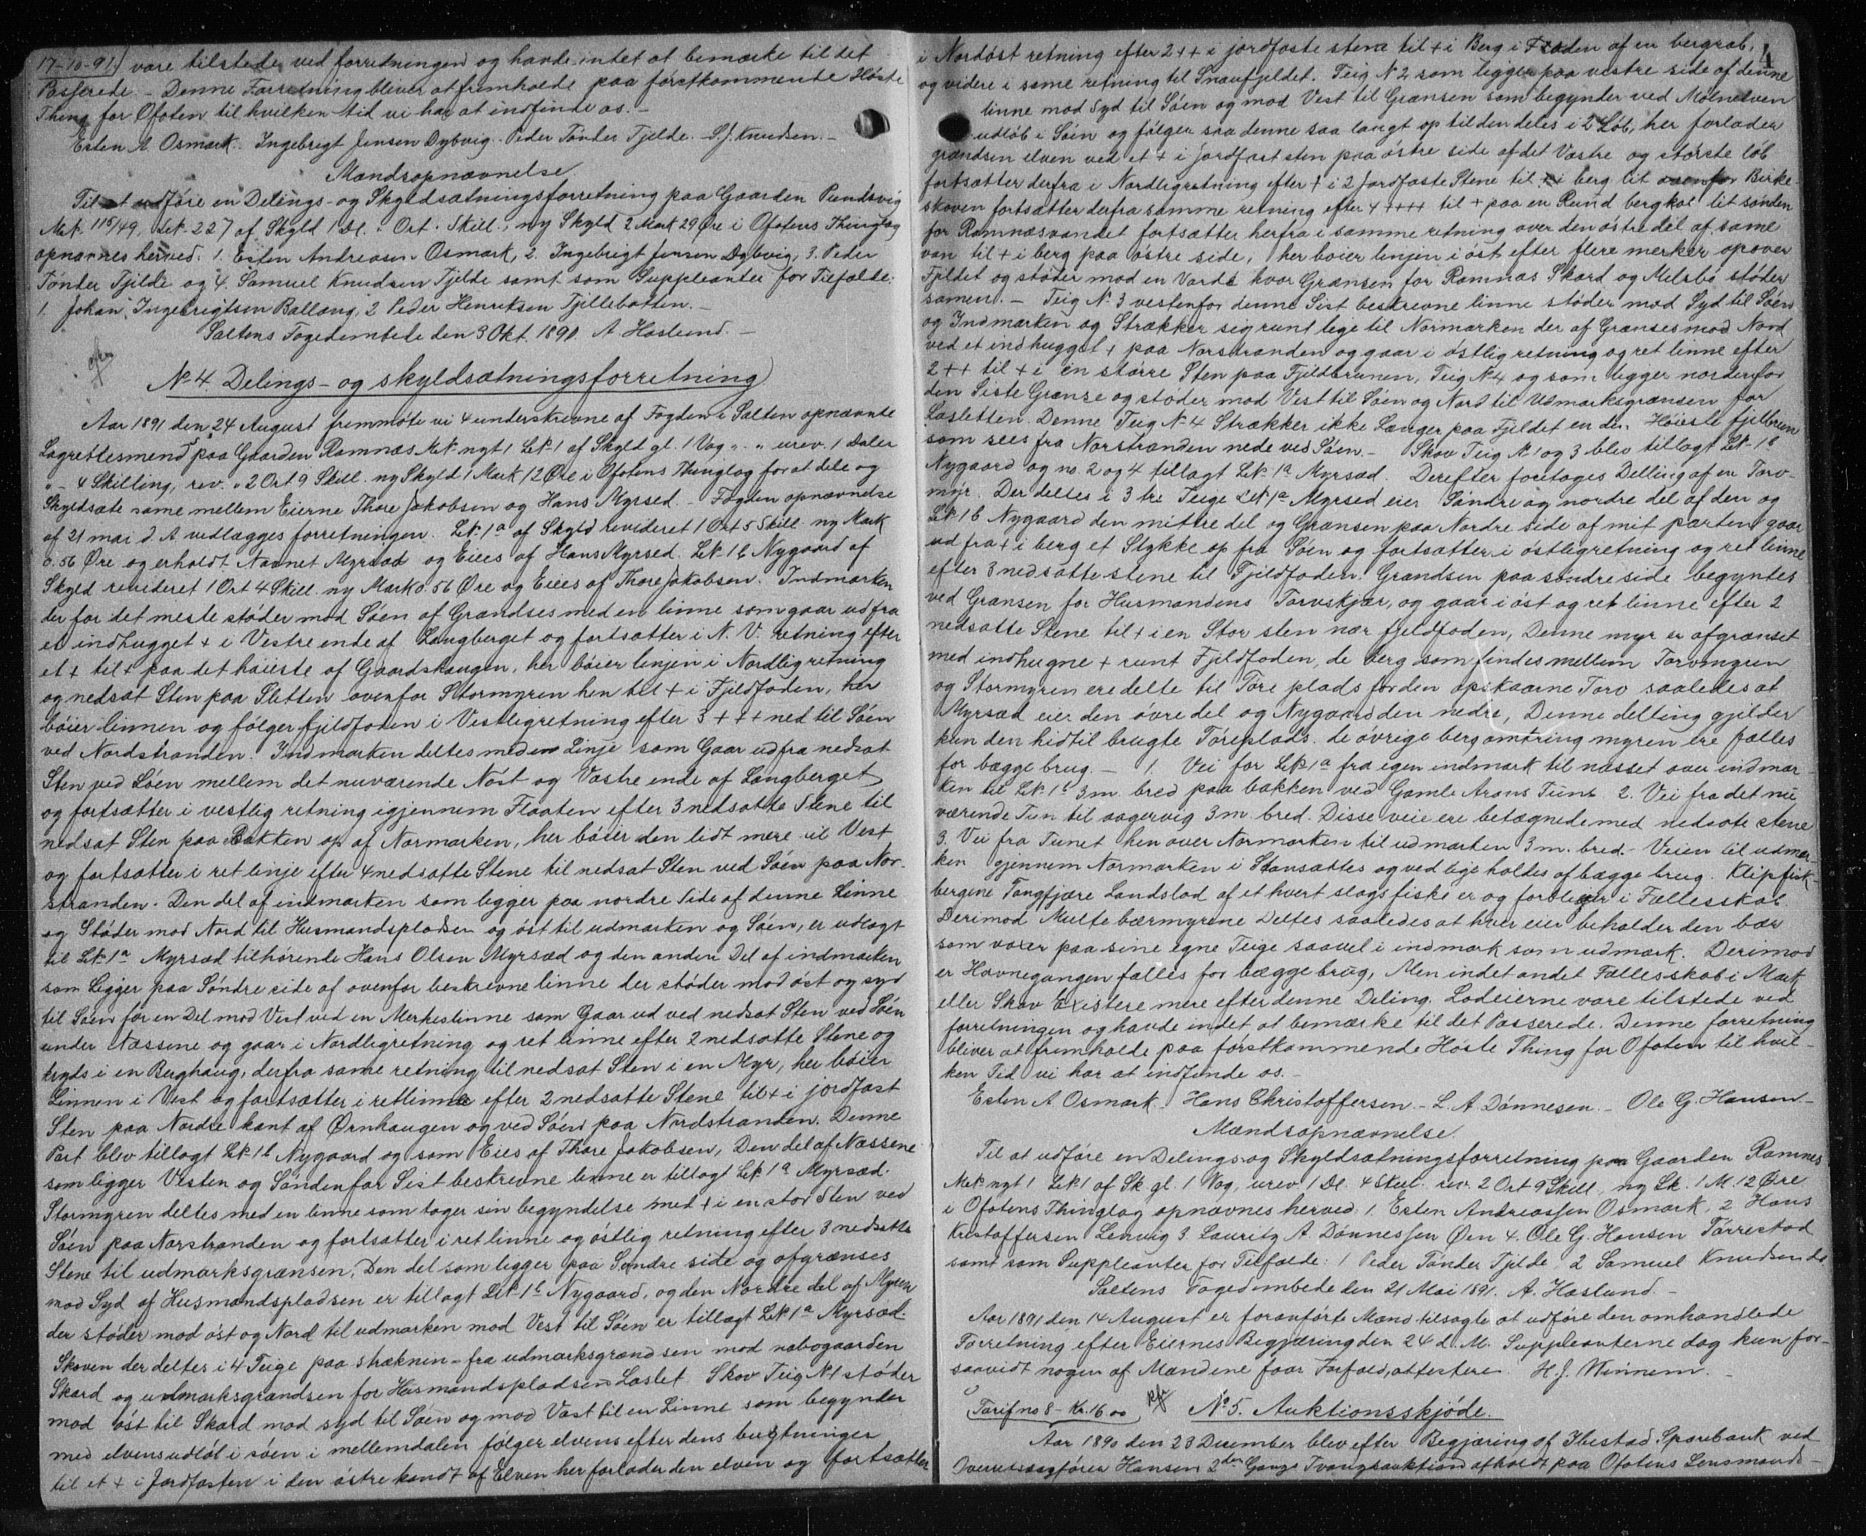 17-10-91) vare tilstede ved forretningen og havde intet at bemærke til det
Passerede. – Denne Forretning bliver at fremholde paa førstkommende Høste
Thing for Ofoten til hvilken tid vi har at indfinde os. –
Esten A. Osmark. Ingebrigt Jensen Dybvig. Peder Tönder Tjelde. S. J. Knudsen. –
Mandsopnævnelse
Til at udföre en Delings- og Skyldsætningsforretning paa Gaarden Pundsvig
Mk. 115/49, Lek. 227 af Skyld 1 Dl. " Ort. " Skill., ny Skyld 2 Mark 29 Øre i Ofotens Thinglag
opnævnes herved: 1. Esten Andreasen Osmark, 2. Ingebrigt Jensen Dybvig, 3. Peder
Tönder Tjelde og 4. Samuel Knudsen Tjelde samt som Suppleanter for Tilfælde:
1 Johan Ingebrigtsen Ballang, 2 Peder Henriksen Fjellebotten. –
Saltens Fogedembede den 3 Okt. 1890. A. Haslund. –
No 4. Delings- og skyldsætningsforretning
Aar 1891 den 24 August fremmöte vi 4 understrevne af Fogden i Salten opnævnte
Lagrettesmend paa Gaarden Ramnæs Mk. nyt 1 Lk. 1 af Skyld gl. 1 Vog " " urev. 1 Daler
" – 4 Skilling, rev. " 2 Ort 9 Skill. ny Skyld 1 Mark 12 Øre i Ofotens Thinglag for at dele og
Skyldsæte same mellem Eierne Thore Jakobsen og Hans Myrsed – Fogden opnævnelse
af 21 mai d. A vedlægges forretningen. Lk. 1a af Skyld revideret 1 Ort 5 Skill. ny Mark
0.56 Øre og erholdt Navnet Myrsæd og Eies af Hans Myrsed. Lk. 1b Nygaard af
Skyld revideret 1 Ort 4 Skill. ny Mark 0.56 Øre og Eies af Thore Jakobsen. Indmarken
der for det meste støder mod Søen af Grændses med en linne som gaar ud fra
et indhugget + i Vestre ende af Langberget og fortsætter i N. V. retning efter
et + til + paa det høieste af Gaardshaugen, her bøier linjen i Nordlig retning
og nedsat Sten paa Sletten ovenfor Stormyren hen til + i Fjeldfoden, her
böier linnen og følger fjeldfoden i Vestligretning efter 3 +++ ned til Söen
ved Nordstranden. Indmarken deltes med en Linje som Gaar ud fra nedsat
Sten ved Söen mellem det nuværende Nöst og Vestre ende af Langberget
og fortsætter i vestlig retning igjennem Flaaten efter 3 nedsatte Stene til
nedsat Sten paa Bakken op af Normarken, her bøier den lidt mere til Vest
og fortsætter i ret linje efter 4 nedsatte Stene til nedsat Sten ved Söen paa Nor-
stranden. Den del af indmarken som ligger paa nordre Side af denne Linne
og Støder mod Nord til Husmandspladsen og öst til udmarken og Söen, er udlagt
til Lk. 1a Myrsæd tilhørende Hans Olsen Myrsæd og den anden Del af indmarken
som Ligger paa Söndre side af ovenfor beskrevne linne der støder mod öst og syd
til Søen for en Del mod Vest ved en Merkeslinne som Gaar ud ved nedsat Sten ved Söen
under Næssene og gaar i Nordligretning og ret linne efter 2 nedsatte Stene og
kryds i en Berghaug, derfra same retning til nedsat Sten i en Myr, her bøier
Linnen i Vest og fortsætter i retlinne efter 2 nedsatte Stene til + i jordfast
Sten paa Nordre kant af Ørnhaugen og ved Söen paa Nordstranden. Denne
Part blev tillagt Lk. 1b Nygaard og som Eies af Thore Jakobsen, Den del af Næssene
som ligger Vesten og Sönden for Sist beskrevne linne er tillagt Lk. 1a Myrsæd.
Stormyren deltes med en linne som tager sin begyndelse med + i en stor Sten ved
Söen paa Norstranden og fortsætter i ret linne og östlig retning efter 3 nedsatte
Stene til udmarksgrænsen, Den del som ligger paa Söndre side og afgrænses
mod Syd af Husmandspladsen er tillagt Lk. 1b Nygaard, og den Nordre del af Myren
der støder mod öst og Nord til udmarken mod Vest til Söen er tillagt Lk. 1a Myrsæd.
Skoven der deltes i 4 Teige paa strækning fra udmarksgrændsen mod nabogaarden
Skard og udmarksgrændsen for Husmandspladsen Laslet. Skov Teig N. 1 støder
mod öst til Skard mod syd til Söen og mod Vest til en Linne som begynder
med elvens udlöb i söen i mellemdalen følger elvens efter dens bugtninger
til et + i Jordfasten i den östre kandt af Elven her forlader den elven og fortsætter
4
i Nordöst retning efter 2 ++ i jordfaste stene til + i Berg i Foden af en bergrab,
og videre i same retning til Snaufjeldet. Teig N 2 som ligger paa vestre side af denne
linne mod Syd til Söen og mod Vest til Grænsen som begynder ved Molneelven
udløb i Søen og fölger saa denne saa langt op til den deles i 2 Löb, her forlader
grændsen elven ved et + i jordfast sten paa östre side af det Vestre og største löb
fortsætter derfra i Nordligretning efter + i 2 Jordfaste Stene til + i berg lit ovenfor Birke-
skoven fortsætter derfra samme retning efter 4 ++++ til + paa en Rund bergkol lit sönden
for Ramnæsvandet fortsætter herfra i samme retning over den östre del af same
van til + i berg paa östre side, her boier linjen i öst efter flere merker opover
Fjeldet og støder mod en Varde hvor Grænsen for Ramnæs Skard og Melsbø støder
samen. – Teig N. 3 vestenfor denne Sist beskrevne linne støder mod Syd til Söen
og Indmarken og Strækker sig runt lege til Normarken der af Grænses mod Nord
ved et indhugget + paa Norstranden og gaar i östlig retning og ret linne efter
2 ++ til + i en större Sten paa Fjeldbrunen, Teig N 4 og som ligger nordenfor
den Siste Grænse og støder mod Vest til Söen og Nord til Udmarksgrænsen for
Lasletten. Denne Teig N. 4 Strækker ikke Længer paa Fjeldet en den Höieste fjelbrun
som sees fra Norstranden nede ved Söen. – Skov Teig N. 1 og 3 blev tillagt Lk. 1b
Nygaard og no 2 og 4 tillagt Lk. 1a Myrsæd. Derefter foretoges Delling af en Torv-
myr. Der deltes i 3 tre Teige Lk. 1a Myrsed eier Söndre og nordre del af den og
Lk. 1b Nygaard den mittre del og Grænsen paa Nordre side af mit parten gaar
ud fra + i berg et Stykke op fra Söen og fortsætter i östligretning og ret linne
efter 3 nedsatte stene til Fjeldfoden. Grændsen paa söndre side begyntes
ved Grænsen for Husmandens Torvskjær, og gaar i öst og ret linne efter 2
nedsatte Stene til + i en Stor sten nær fjeldfoden, Denne myr er afgrænset
med indhugne + runt Fjeldfoden, de berg som findes mellem Torvmyren
og Stormyren ere delte til Töre plads for den opskaarne Torv saaledes at
Myrsæd eier den övre del og Nygaard den nedre, Denne delling gjelder
kun den hidtil brugte Töreplads. de øvrige berg omtring myren ere fælles
for bægge brug. – 1. Vei for Lk. 1a fra egen indmark til næsset over indmar-
ken til Lk. 1b 3 m. bred paa bakken ved Gamle Arons Tunt 2. Vei fra det nu
værende Tun til aagervig 3 m. bred. Disse veie ere betægnede med nedsatte stene
3. Vei fra Tunet hen over Normarken til udmarken 3 m. bred. – Veien til udmar-
ken gjennem Normarken i Standsættes og vedlige holdes af bægge brug. Klipfisk
bergene Tangfjære Landslod af et hvert slags fiske er og forbliver i Fællesskab
Derimod Multebærmyrene Deltes saaledes at hver eier beholder den bær
som voxer paa sine egne Teige saavel i indmark som udmark. Derimod
er Havnegangen fælles for bægge brug, Men indet andet Fællesskab i Mark
eller Skov Existere mere efter denne Deling. Lodeierne vare tilstede ved
forretningen og havde indet at bemærke til det Passerede. Denne forretning
bliver at fremholde paa førstkommende Høste Thing for Ofoten til hvil-
ken Tid vi har at indfinde os. –
Esten A. Osmark. – Hans Christoffersen – L. A. Dønnesen. – Ole G. Hansen –
Mændsopnævnelse.
Til at udföre en Delings og Skyldsætningsforretning paa Gaarden Ramnes
Mk. nyt 1 Lk 1 af Sk. gl. 1 Vog, urev. 1 Dl. 4 Skil. rev. 2 Ort 9 Skill. ny Sk. 1 M. 12 Øre
i Ofotens Thinglag opnævnes herved: 1. Esten Andreassen Osmark, 2 Hans
Kristoffersen Lenvig 3. Lauritz A. Dønnessen Øen 4. Ole G. Hansen Tørrestad
samt som Suppleanter for Tilfælde: 1 Peder Tönder Tjelde 2 Samuel Knudsen ds
Saltens Fogedembede den 21 Mai 1891. A. Haslund. –
Aar 1891 den 14 August er foranførte Mænd tilsagte at udföre den omhandlede
Forretning efter Eiernes Begjæring den 24 d. M. Suppleanterne dog kun for-
saavidt nogen af Mændene faar Forfald, attesterer H. J. Winnem. –
Tarif no 8 – Kr. 16 00 No 5. Auktionsskjöde.
Aar 1890 den 23 December blev efter Begjæring af Ibestad Sparebank ved
Overretssagfører Hansen 2den Gangs Tvangsauktion afholdt paa Ofotens Lensmands-